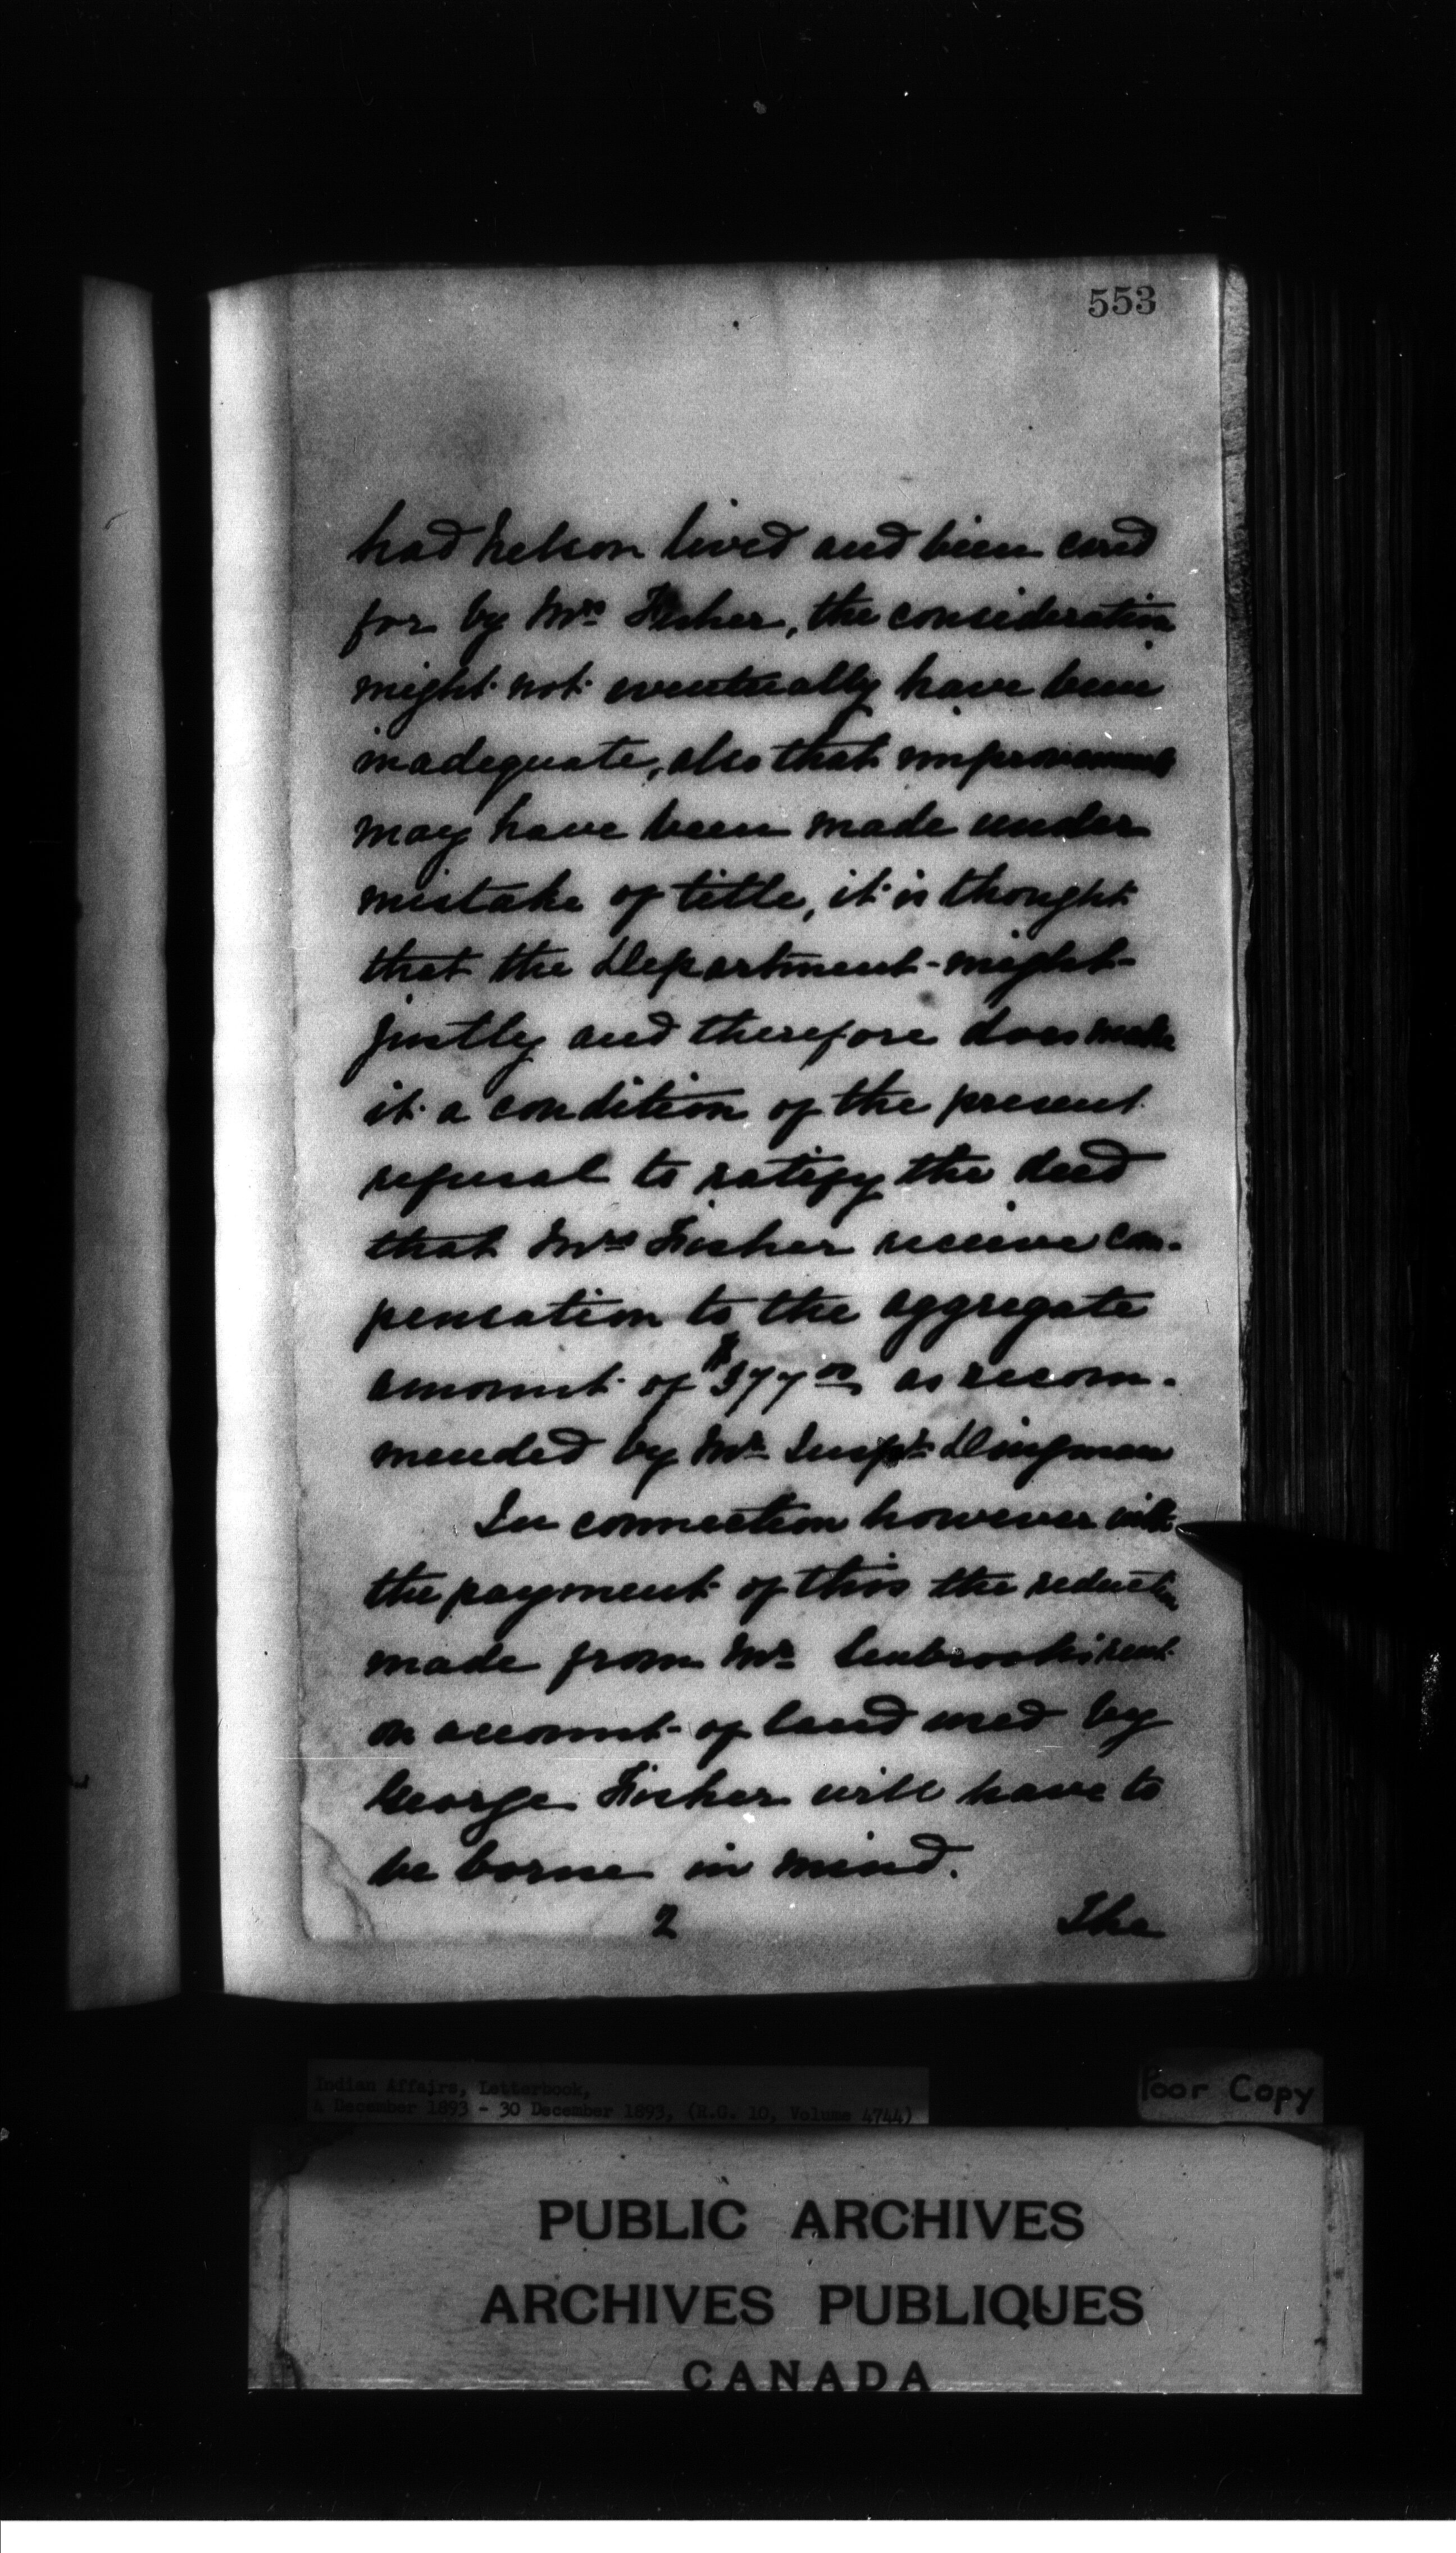 553
had Nelson lived and been cared
for by Mrs Fisher, the consideration
might not eventually have been
inadequate, also that improvements
may have been made under
mistake of title, it is thought
that the Department might
justly and therefore does make
it a condition of the present
refusal to ratify the deed
that Mrs Fisher receive com-
pensation to the aggregate
amount of $377.00 as recom-
mended by Mr Inspr Dingman
In connection however with
the payment of this the reduction
made from Mr rent
on account of land used by
George Fisher will have to
be borne in mind.
2 The
Indian Affairs, Letterbook,
4 December 1893 - 30 December 1893, (R.G. 10, Volume 4744)
Poor Copy
PUBLIC ARCHIVES
ARCHIVES PUBLIQUES
CANADA